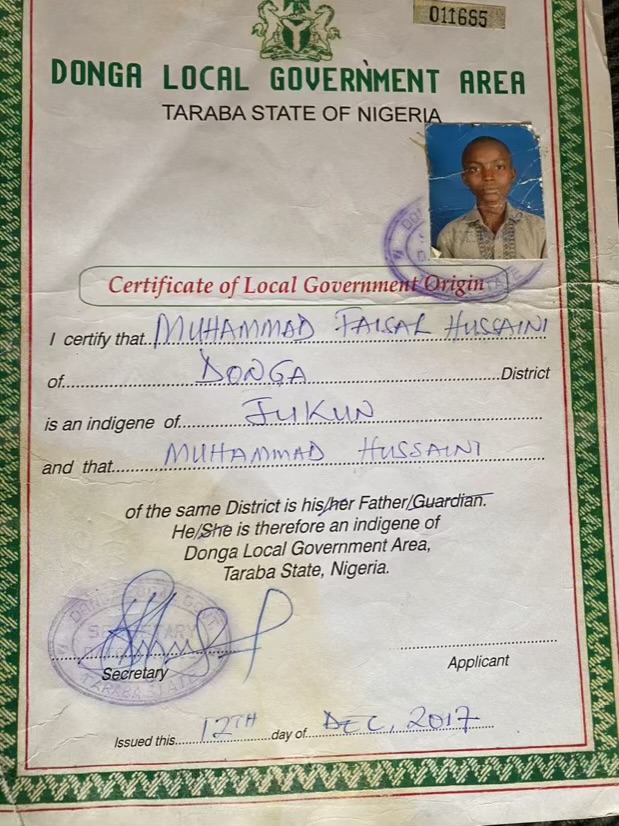 011665
DONGA LOCAL GOVERNMENT AREA
TARABA STATE OF NIGERIA
Certificate of Local Government Origin
I certify that MUHAMMAD FAISAL HUSSAINI
of DONGA District
is an indigene of JUKUN
and that MUHAMMAD HUSSAINI
of the same District is his/her Father/Guardian.
He/She is therefore an indigene of
Donga Local Government Area,
Taraba State, Nigeria.
SECRETARY
TARABA STATE
Secretary
Applicant
Issued this 12TH day of DEC, 2017